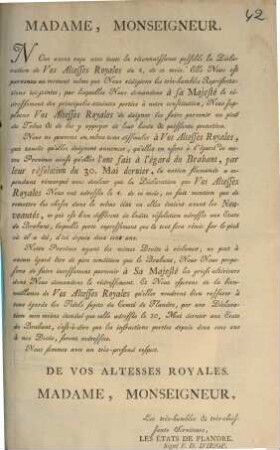 42
MADAME, MONSEIGNEUR.
Nous avons reçu avec toute la réconnoissance possible la Déclaration
de Vos Altesses Royales du 6, de ce mois. Elle Nous est
parvenue au moment même que Nous rédigions les très-humbles Représentations
ci-jointes, par lesquelles Nous demandons à sa Majesté le
rédressement des principales atteintes portées à notre constitution, Nous supplions
Vos Altesses Royales de daigner les faire parvenir au pied
du Trône & de les y appuyer de leur haute & puissante protection.
Nous ne pouvons en même tems dissimuler à Vos Altesses Royales,
que tandis qu'elles daignent annoncer, qu'elles en usent à l'égard de notre
Province ainsi qu'elles l'ont fait à l'égard du Brabant, par
leur résolution du 30. Mai dernier, la nation flamande a cependant
remarqué avec douleur que la Déclaration que Vos Altesses
Royales Nous ont adressée le 6. de ce mois, ne fait mention que de
remettre les choses dans le même état où elles étoient avant les Nouveautés,
ce qui est bien différent de ladite résolution adressée aux Etats
de Brabant, laquelle porte expressément que le tout sera remis sur le pied
où il a été, il est depuis deux cent ans.
Notre Province ayant les mêmes Droits à réclamer, ne peut à
aucun égard être de pire condition que le Brabant, Nous Nous proposons
de faire incessamment parvenir à Sa Majesté les griefs ultérieurs
dont Nous demandons le rédressement. Et Nous esperons de la Bienveillance
de Vos Altesses Royales qu'elles voudront bien rassurer à
tous égards les Fidels Sujets du Comté de Flandre, par une Déclaration
non moins étendue que celle adressée le 30. Mai dernier aux Etats
de Brabant, c'est-à-dire que les infractions portées depuis deux cens ans
à nos Droits, seront redressées.
Nous sommes avec un très-profond respect.
DE VOS ALTESSES ROYALES.
MADAME, MONSEIGNEUR,
Les très-humbles & très-obéis-
sants Serviteurs,
LES ÉTATS DE FLANDRE.
Signé F. D. D'HOOP.